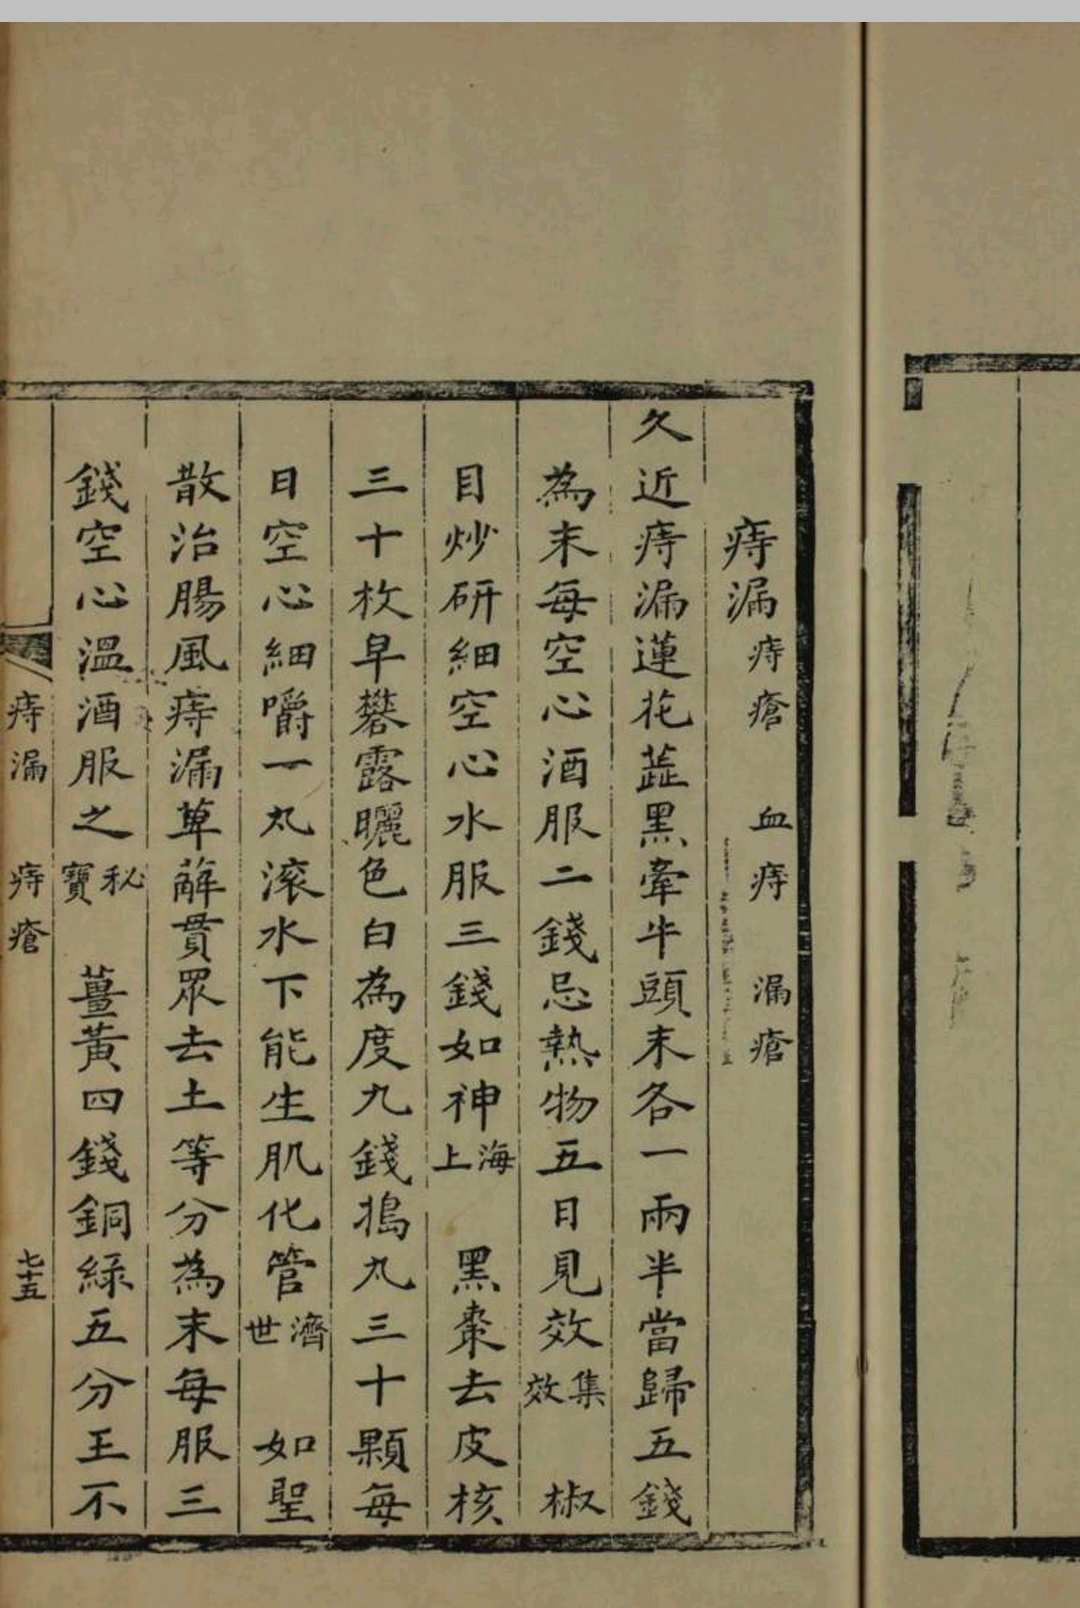 痔漏痔瘡 血痔 漏瘡
久近痔漏蓮花蕋黑牽牛頭末各一兩半當歸五錢
為末每空心酒服二錢忌熱物五日見效集效 椒
目炒研細空心水服三錢如神海上 黑棗去皮核
三十枚早礬露曬色白為度九錢搗丸三十顆每
日空心細嚼一丸滚水下能生肌化管濟世 如聖
散治腸風痔漏萆薢貫眾去土等分為末每服三
錢空心溫酒服之秘寶 薑黃四錢銅綠五分王不
痔漏 痔瘡 七十五